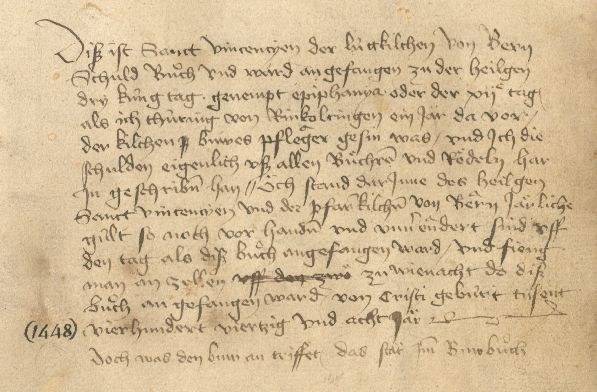 Diß ist Sanct vincencyen der lútkilchen von Bern
Schuld Bůch vnd ward angefangen zů der heilgen
dry kúng tag . genempt epiphanya oder der xij te tag
als ich thúring von Rinkoltingen ein Jar da vor
der kilchen buwes pfleger gesin was / vnd Jch die
schulden eigenlich vß allen Bůchren vnd Rödeln har
Jn geschriben han // Öch stand dar Jnne des heilgen
Sanct vincencyen vnd der pfarkilchen von Bern Järliche
gúllt so noch vor handen vnd vnuerendert sind vff
den tag als diß bůch angefangen ward / vnd fieng
man an zellen vff den zwo zů wienacht do diß
Bůch an gefangen ward von Cristi gebúrt tusent
(1448) vierhundert viertzig vnd acht Jär
Doch was den buw an triffet das stät Jm Buwbůch